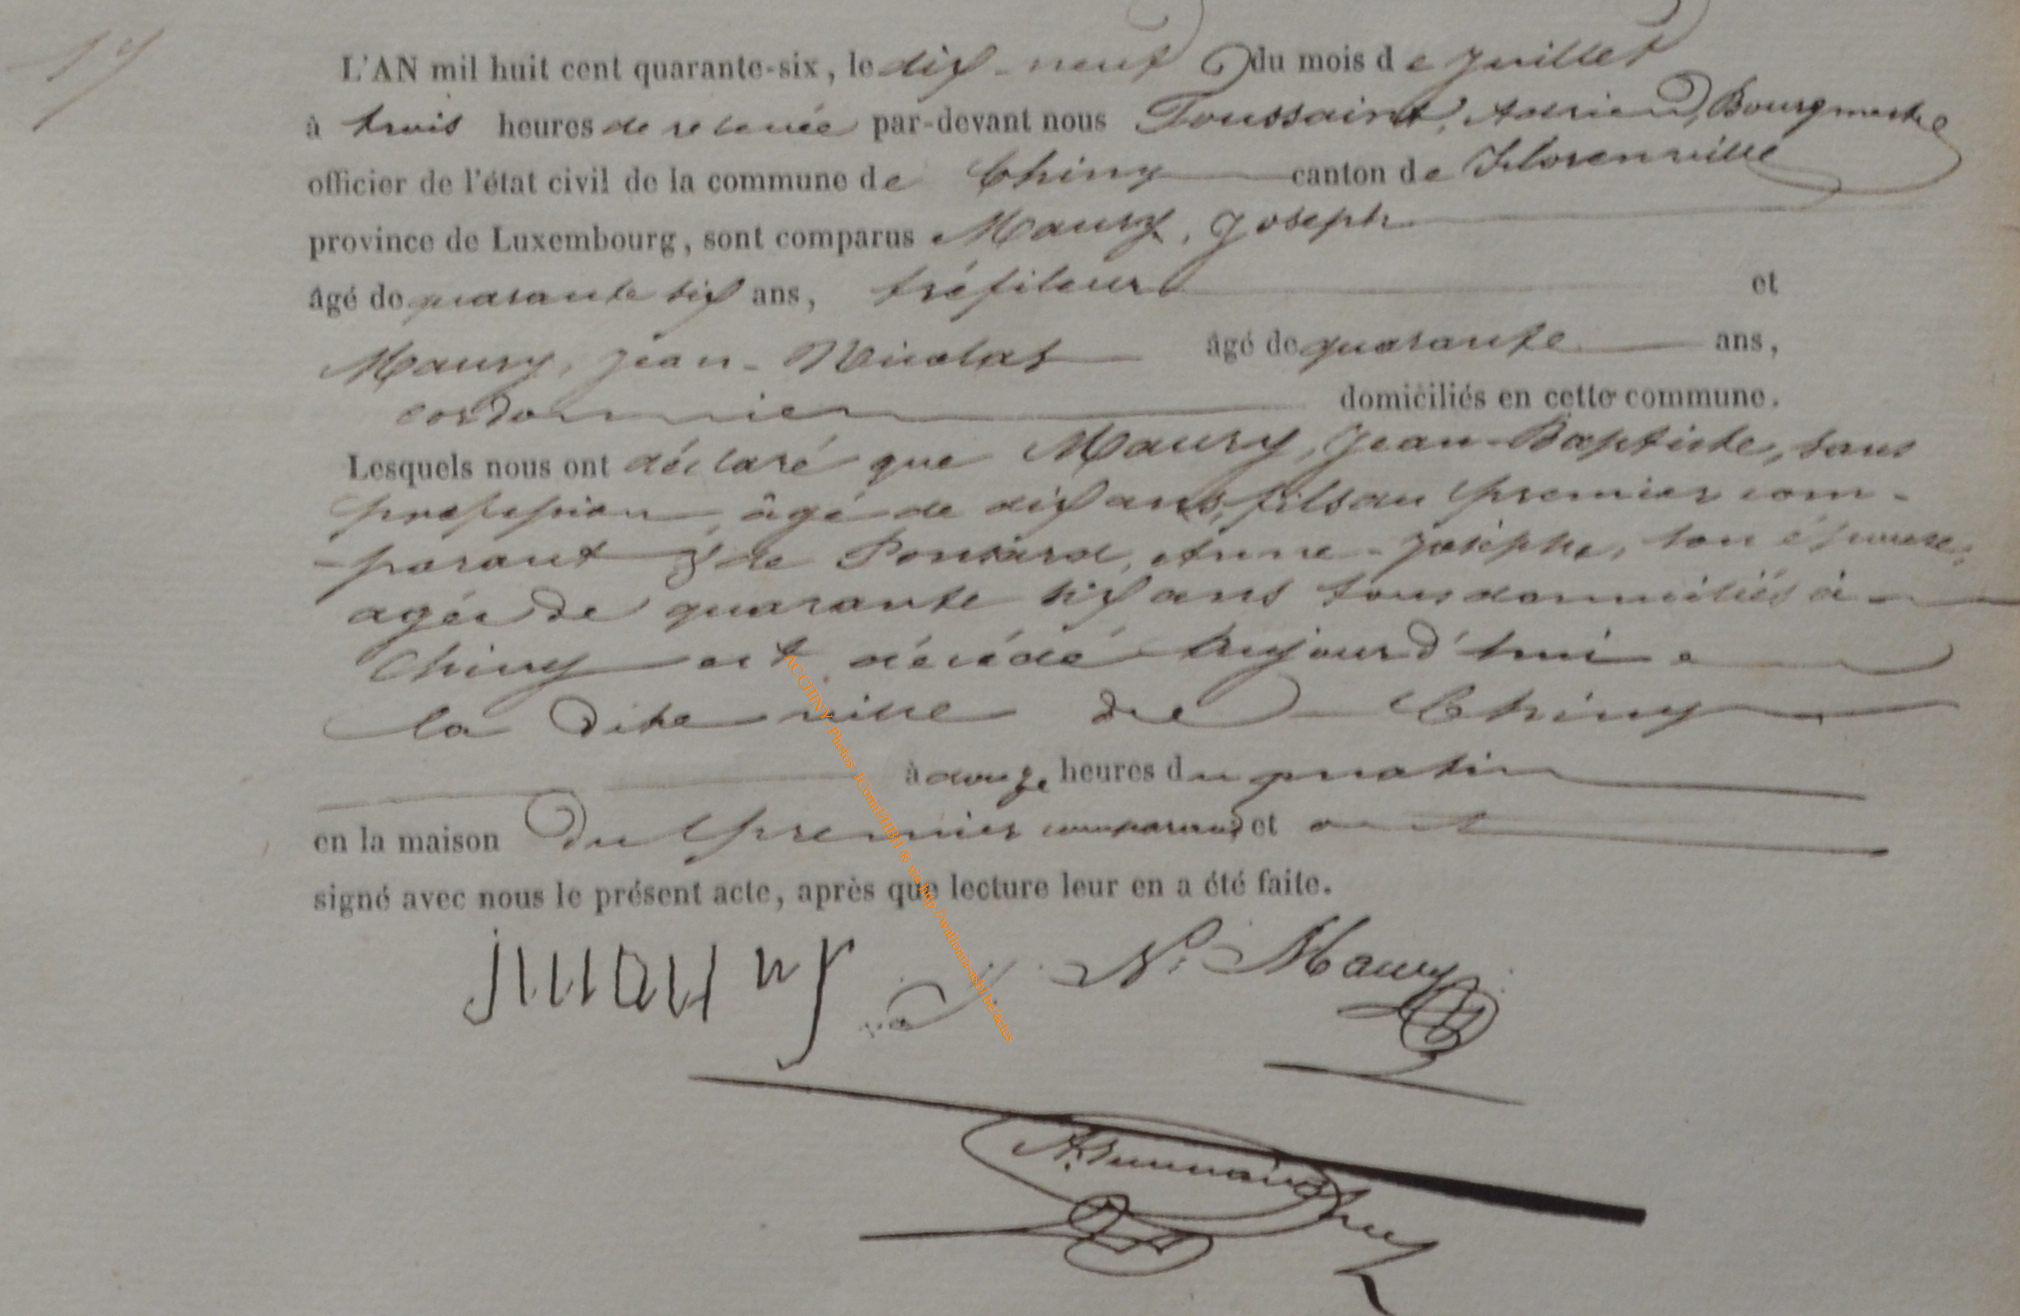 17
L'AN mil huit cent quarante-six, le dix-neuf du mois de Juillet
à trois heures de relevée par-devant nous Toussaint, Adrien, Bourgmestre
officier de l'état civil de la commune de Chiny canton de Florenville
province de Luxembourg, sont comparus Maury, Joseph
âgé de quarante six ans, tréfileur et
Maury, Jean-Nicolas âgé de quarante ans,
cordonnier domiciliés en cette commune.
Lesquels nous ont déclaré que Maury, Jean-Baptiste, sans
profession, âgé de dix ans, fils du premier com-
parant & de Ponsard, Anne-Josephe, son épouse,
agée de quarante six ans tous domiciliés à
Chiny est décédé aujourd'hui a
la dite ville de Chiny
à douze heures du matin
en la maison du premier comparant et ont
signé avec nous le présent acte, après que lecture leur en a été faite.
jmaury N. Maury